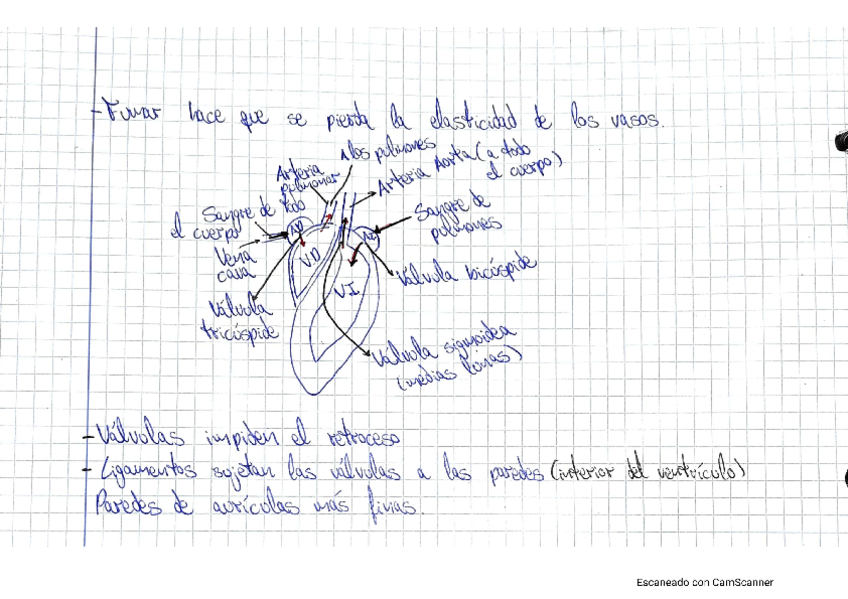 - Fumar hace que se pierda la elasticidad de los vasos.
A los pulmones
Arteria
pulmonar
Arteria Aorta (a todo
el cuerpo)
Sangre de todo
el cuerpo
Sangre de
pulmones
AD
Vena
cava
VD
VI
Válvula bicúspide
Válvula
tricúspide
Válvula sigmoidea
(medias lunas)
- Válvulas impiden el retroceso
- Ligamentos sujetan las válvulas a las paredes (interior del ventrículo)
Paredes de aurículas más finas.
Escaneado con CamScanner